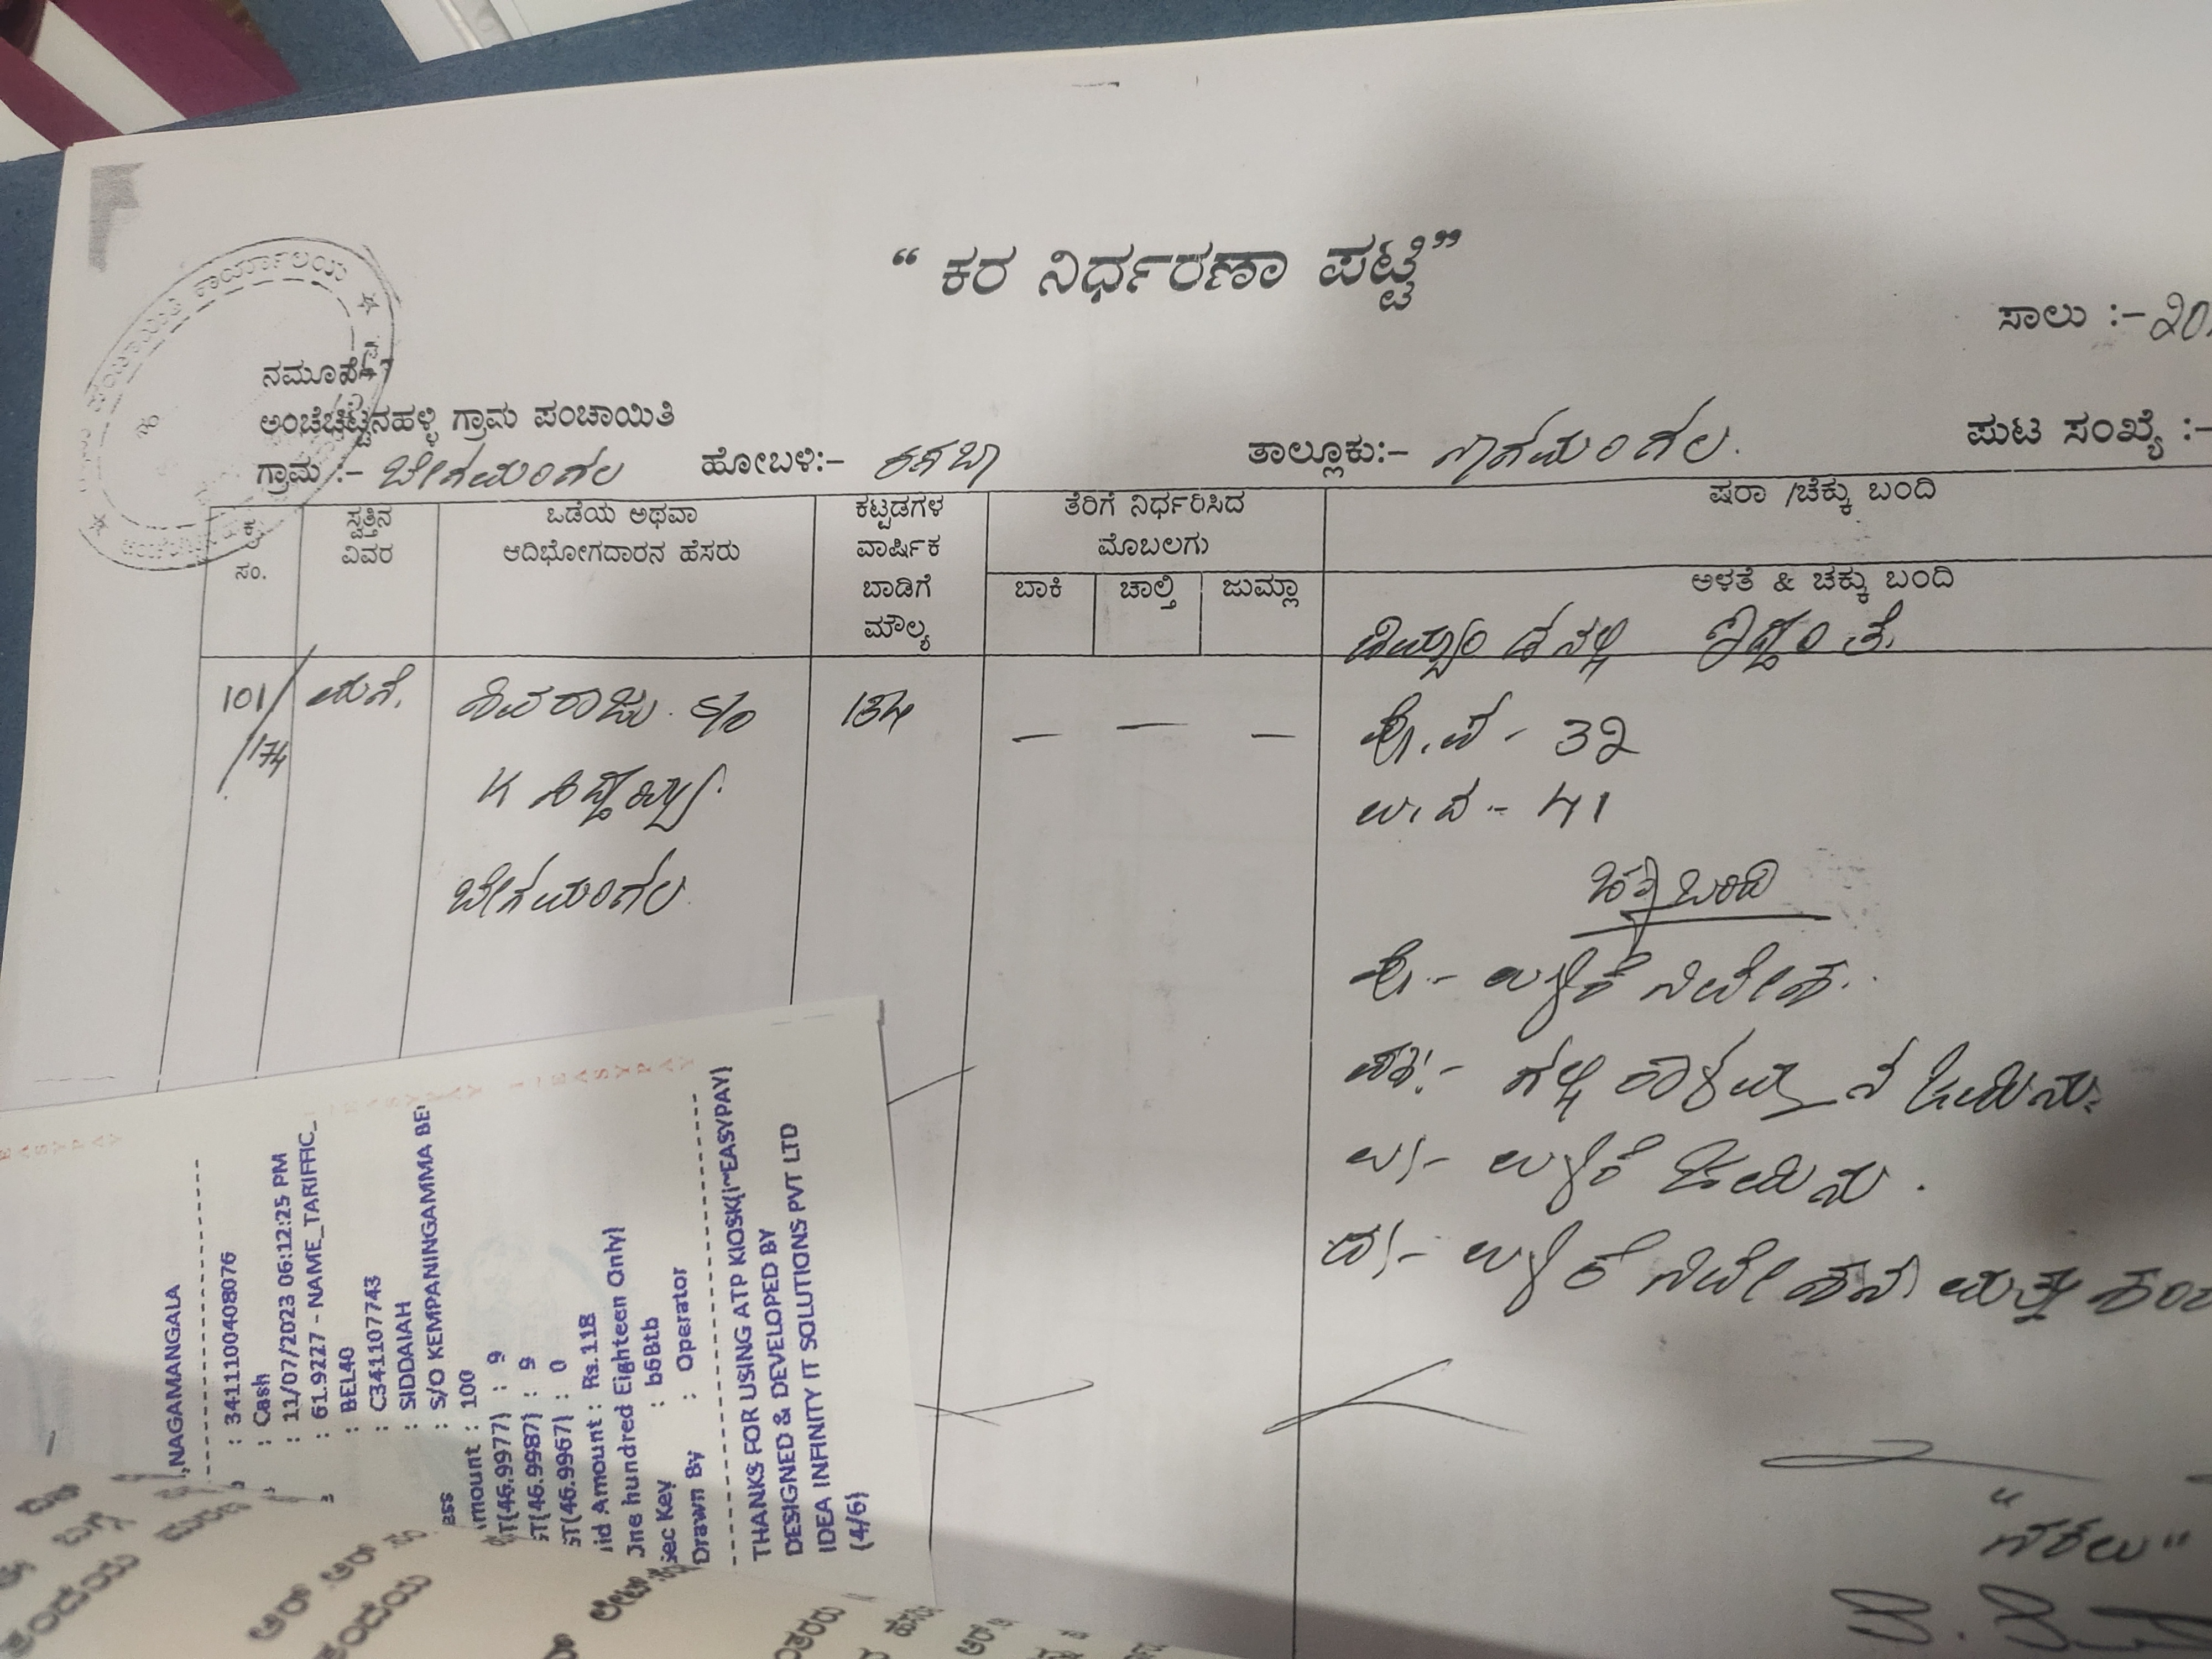 “ ಕರ ನಿರ್ಧರಣಾ ಪಟ್ಟಿ”
ಸಾಲು :- ೨೦
ನಮೂನೆ
ಅಂಚೆಚಿಟ್ಟನಹಳ್ಳಿ ಗ್ರಾಮ ಪಂಚಾಯಿತಿ
ಗ್ರಾಮ :- ಬೇಗಮಂಗಲ ಹೋಬಳಿ:- ಕಸಬಾ ತಾಲ್ಲೂಕು:- ನಾಗಮಂಗಲ. ಪುಟ ಸಂಖ್ಯೆ :-
ಕ್ರ ಸಂ.
ಸ್ವತ್ತಿನ ವಿವರ
ಒಡೆಯ ಅಥವಾ ಆದಿಭೋಗದಾರನ ಹೆಸರು
ಕಟ್ಟಡಗಳ ವಾರ್ಷಿಕ ಬಾಡಿಗೆ ಮೌಲ್ಯ
ತೆರಿಗೆ ನಿರ್ಧರಿಸಿದ ಮೊಬಲಗು
ಬಾಕಿ ಚಾಲ್ತಿ ಜುಮ್ಲಾ
ಷರಾ /ಚೆಕ್ಕು ಬಂದಿ
ಅಳತೆ & ಚಕ್ಕು ಬಂದಿ
ಇದ್ದಂತೆ.
101/ ಮನೆ. ಶಿವರಾಜು S/o 134 — — —
/174
K ಸಿದ್ದಯ್ಯ.
ಬೇಗಮಂಗಲ
ಪೂ.ಪ - 32
ಉ.ದ - 41
ಚಕ್ಕುಬಂದಿ
ಪೂ:- ಉಳಿಕೆ ನಿವೇಶ.
ಪ:- ಗಲ್ಲಿ
ಉ:- ಉಳಿಕೆ ಜಮೀನು.
ದ:- ಉಳಿಕೆ ನಿವೇಶನ ಮತ್ತು
“ನಕಲು”
,NAGAMANGALA
: 3411100408076
: Cash
: 11/07/2023 06:12:25 PM
: 61.9227 - NAME_TARIFFIC_
: BEL40
: C341107743
: SIDDAIAH
ess : S/O KEMPANINGAMMA BE
mount : 100
ST(46.9977) : 9
ST(46.9987) : 9
ST(46.9967) : 0
id Amount : Rs.118
One hundred Eighteen Only)
Sec Key : b6Btb
Drawn By : Operator
THANKS FOR USING ATP KIOSK(I~EASYPAY)
DESIGNED & DEVELOPED BY
IDEA INFINITY IT SOLUTIONS PVT LTD
(4/6)
ತಂದೆಯ ಮರಣ
ಆರ್ ಆರ್ ನಂ.
ತಂದೆಯ
ಲೇಟ್